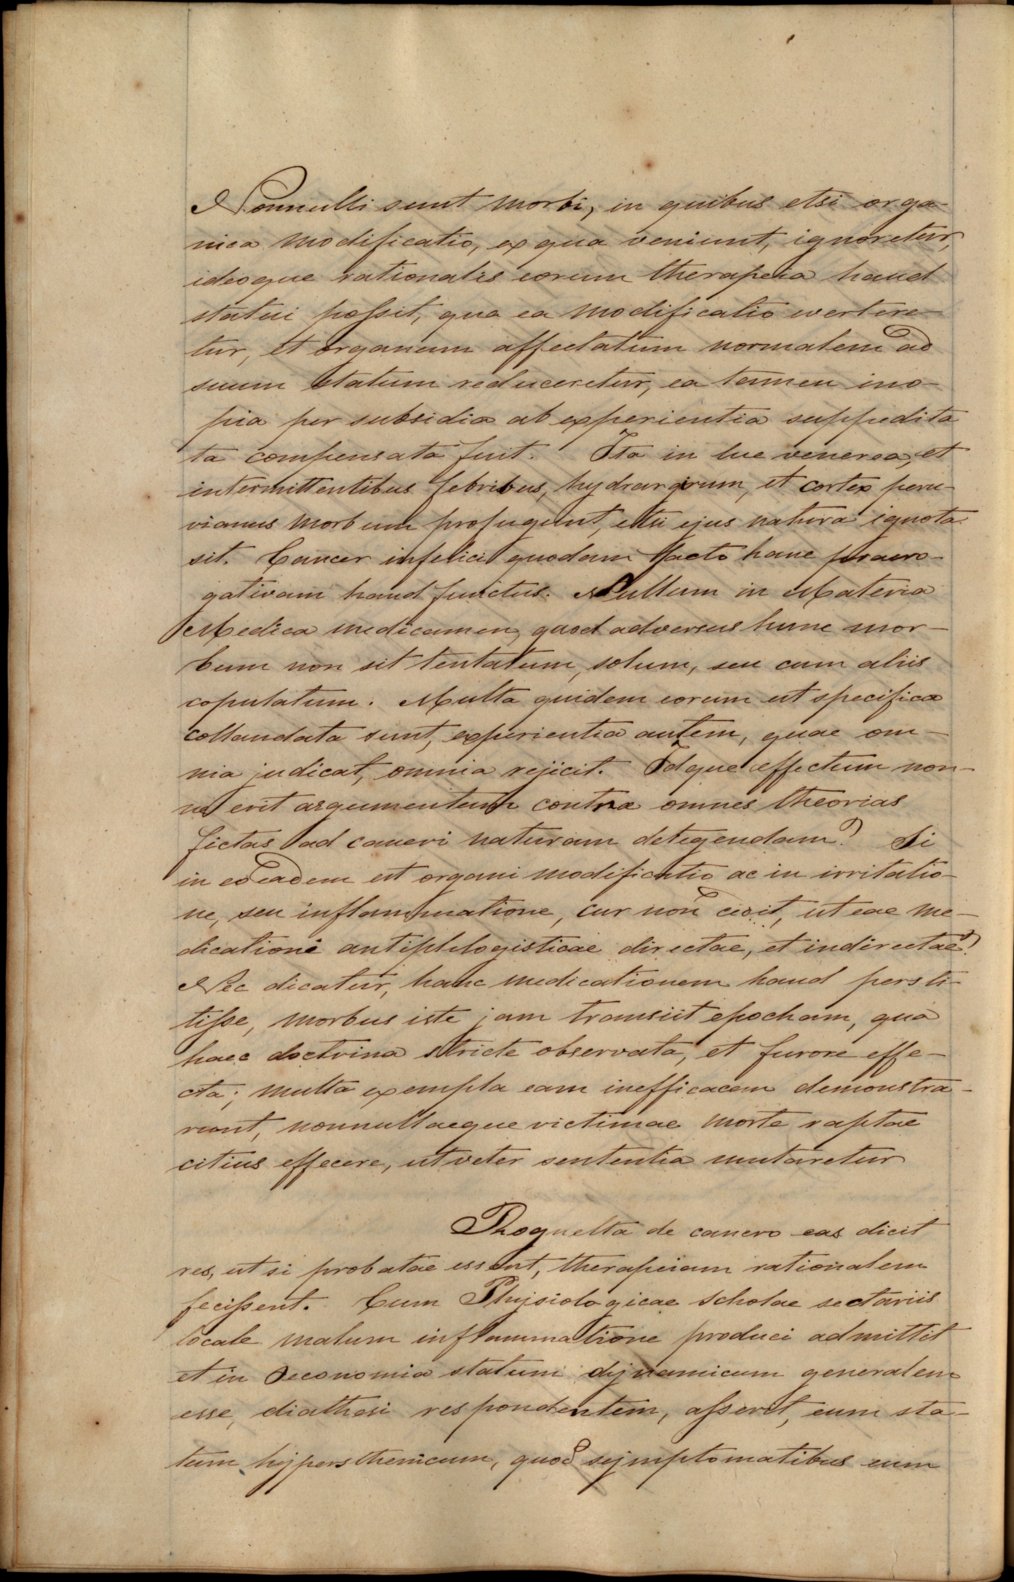 Nonnulli sunt morbi, in quibus etsi orga-
nica modificatio, ex qua veniunt, ignoretur,
ideoque rationalis eorum therapeia haud
statui possit, qua ea modificatio vertere-
tur, et organum affectatum normalem ad
suum statum reduceretur, ea tamen ino-
pia per subsidia ab experientia suppedita
ta compensata fuit. Ita in lue venerea, et
intermittentibus febribus, hydrargirum, et cortex peru-
vianus morbum profugunt, etsi ejus natura ignota
sit. Cancer infelici quodam facto hanc praero-
gativam haud functus. Nullum in Materia
Medica medicamen, quod adversus hunc mor-
bum non sit tentatum, solum, seu cum aliis
copulatum. Multa quidem eorum ut specifica
collaudata sunt, experientia autem, quae om-
nia judicat, omnia rejicit. Idque effectum non-
ne erit argumentum contra omnes theorias
fictas ad cancri naturam detegendam? Si
in eo eadem est organi modificatio ac in irritatio-
ne, seu inflammatione, cur non cedit, ut eae me-
dicatione antiphlogisticae directae, et indirectae?
Nec dicatur, hanc medicationem haud persti-
tisse, morbus iste jam transiit epocham, qua
haec doctrina stricte observata, et furore effe-
cta; multa exempla eam inefficacem demonstra-
runt, nonnullaeque victimae morte raptae
citius effecere, ut veter sententia mutaretur
Roguetta de cancro eas dicit
res, ut si probatae essent, therapeiam rationalem
fecissent. Cum Physiologicae scholae sectariis
locale malum inflammatione produci admittit
et in oeconomia statum dynamicum generalem
esse, diathesi respondentem, asserit, eum sta-
tum hypersthenicum, quod symptomatibus eum